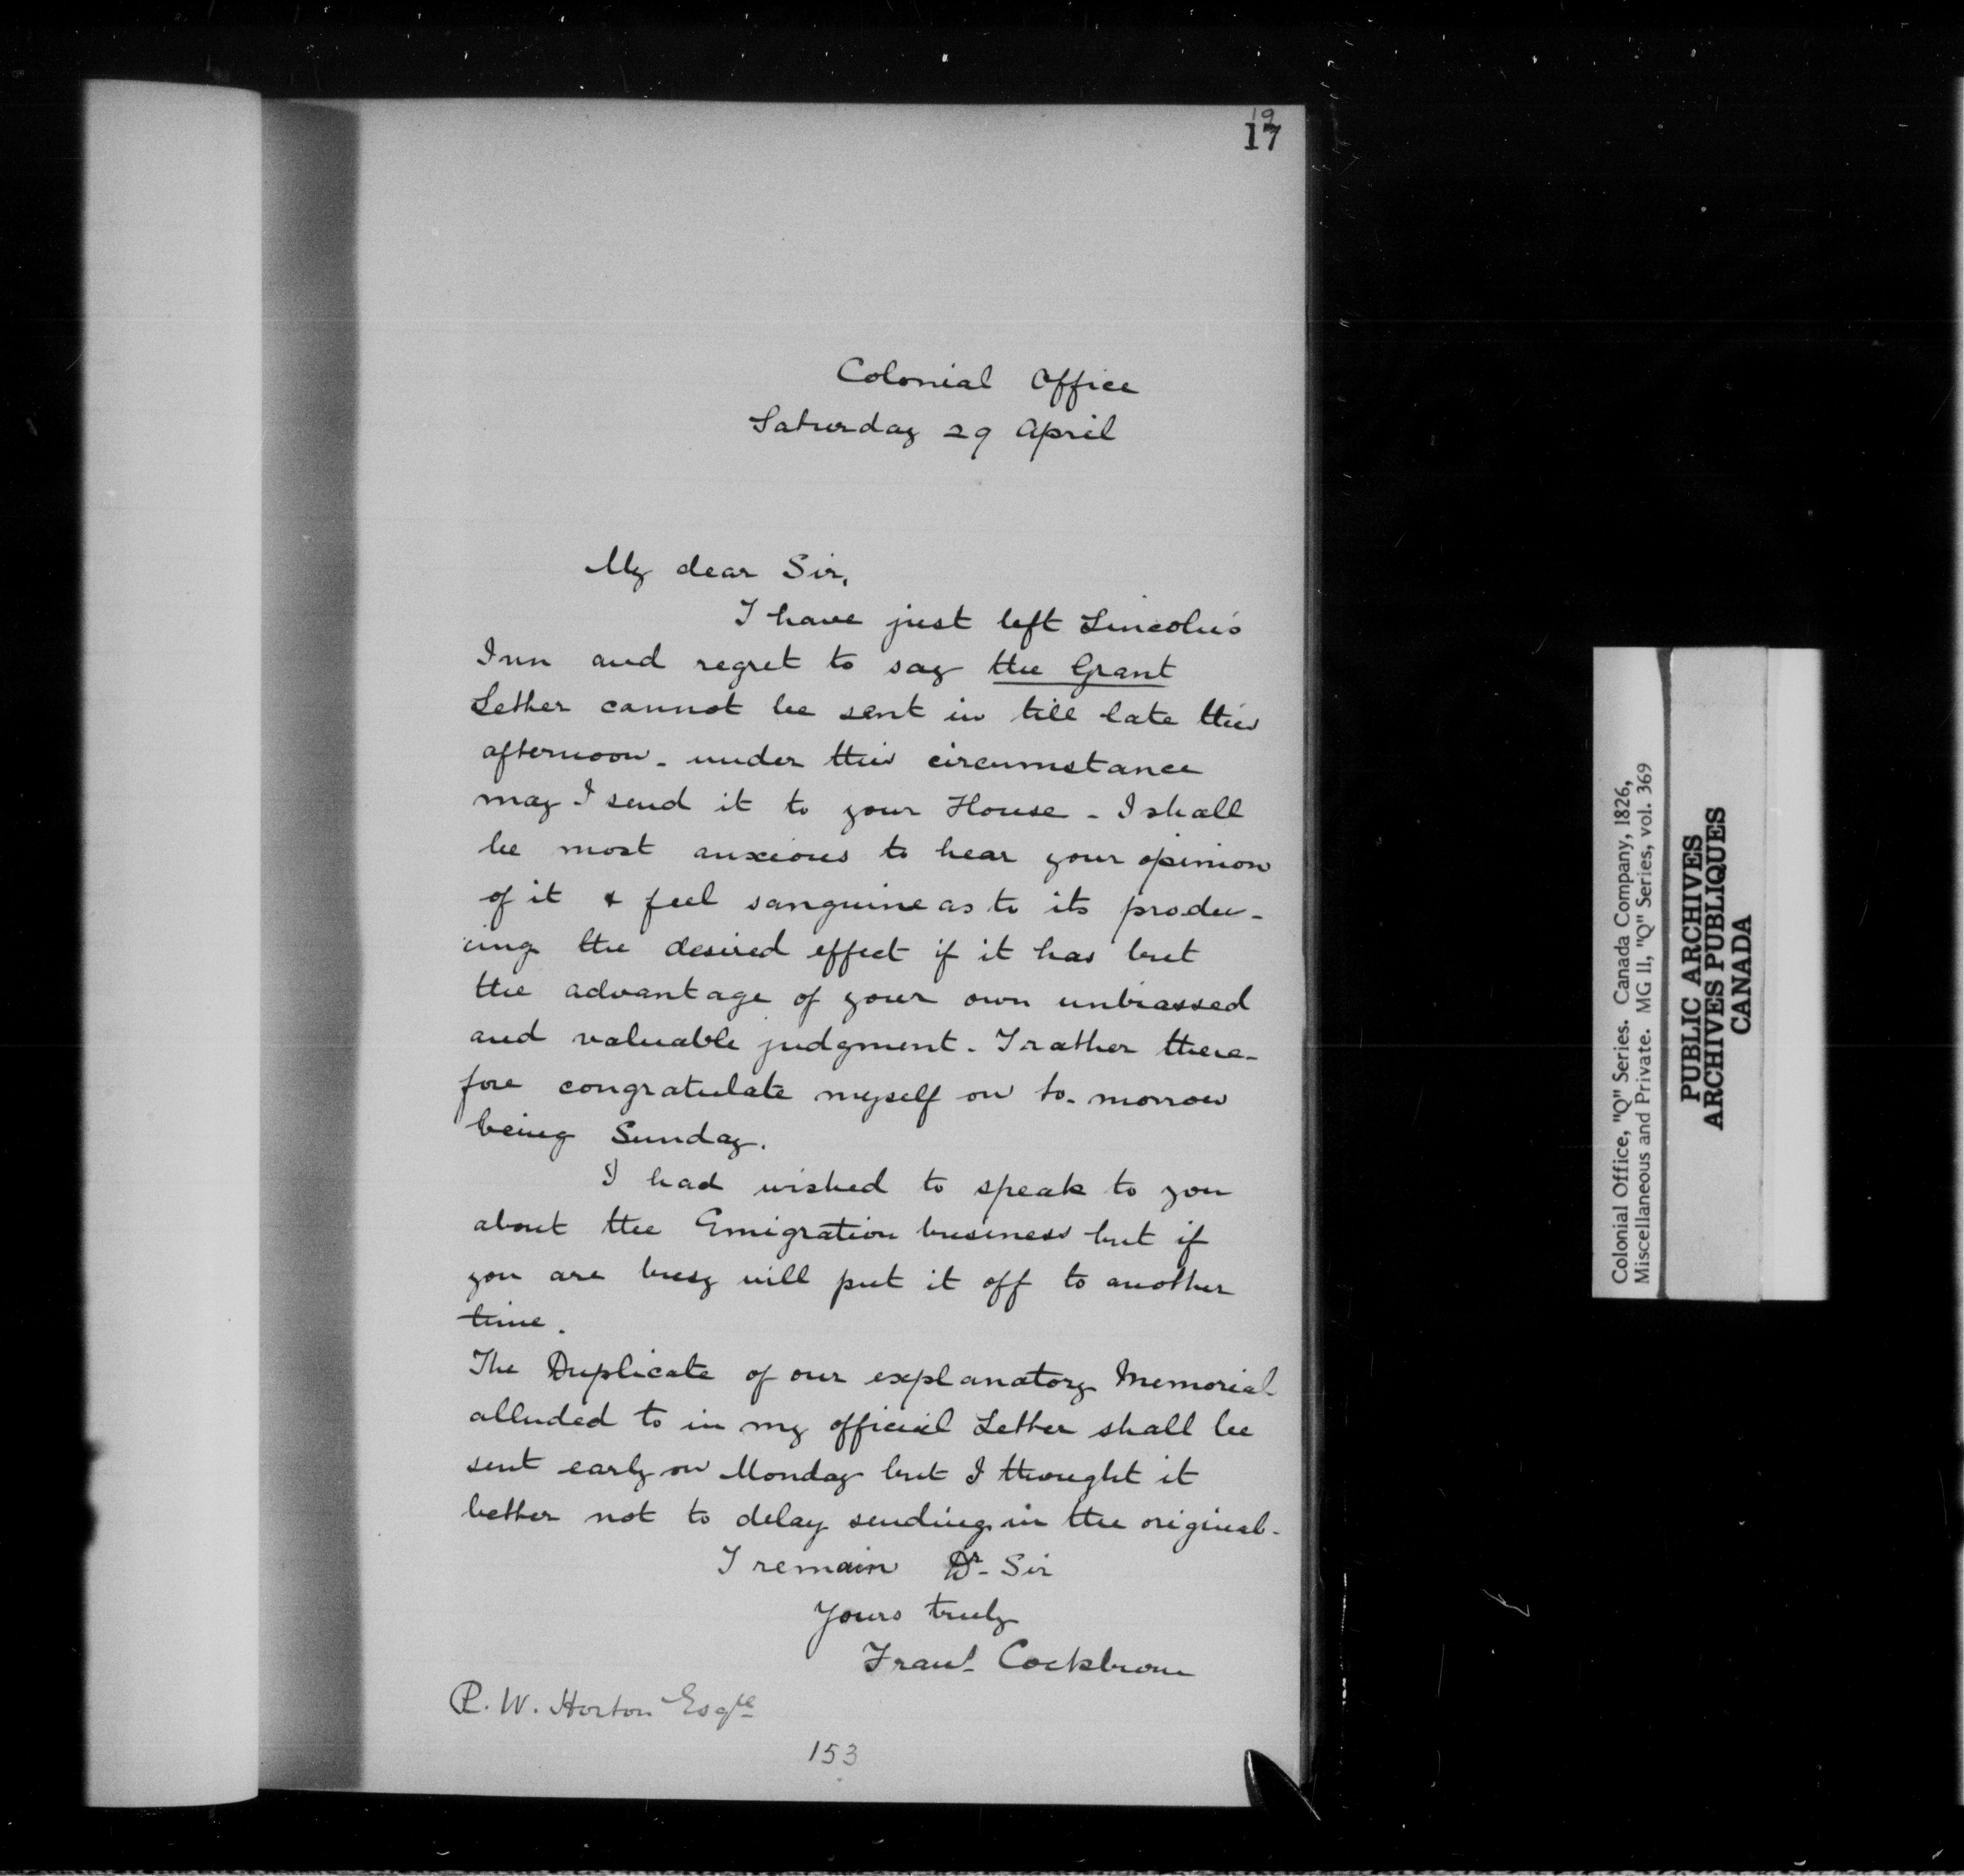 19
17
Colonial Office
Saturday 29 April
My dear Sir,
I have just left Lincoln's
Inn and regret to say the Grant
Letter cannot be sent in till late this
afternoon - under this circumstance
may I send it to your House - I shall
be most anxious to hear your opinion
of it & feel sanguine as to its produ-
cing the desired effect if it has but
the advantage of your own unbiassed
and valuable judgment - I rather there-
fore congratulate myself on to-morrow
being Sunday.
I had wished to speak to you
about the Emigration business but if
you are busy will put it off to another
time.
The Duplicate of our explanatory Memorial
alluded to in my official Letter shall be
sent early on Monday but I thought it
better not to delay sending in the original -
I remain Dr. Sir
Yours truly
Frans. Cockburn
R. W. Horton Esqre
153
Colonial Office, "Q" Series. Canada Company, 1826,
Miscellaneous and Private. MG 11, "Q" Series, vol. 369
PUBLIC ARCHIVES
ARCHIVES PUBLIQUES
CANADA